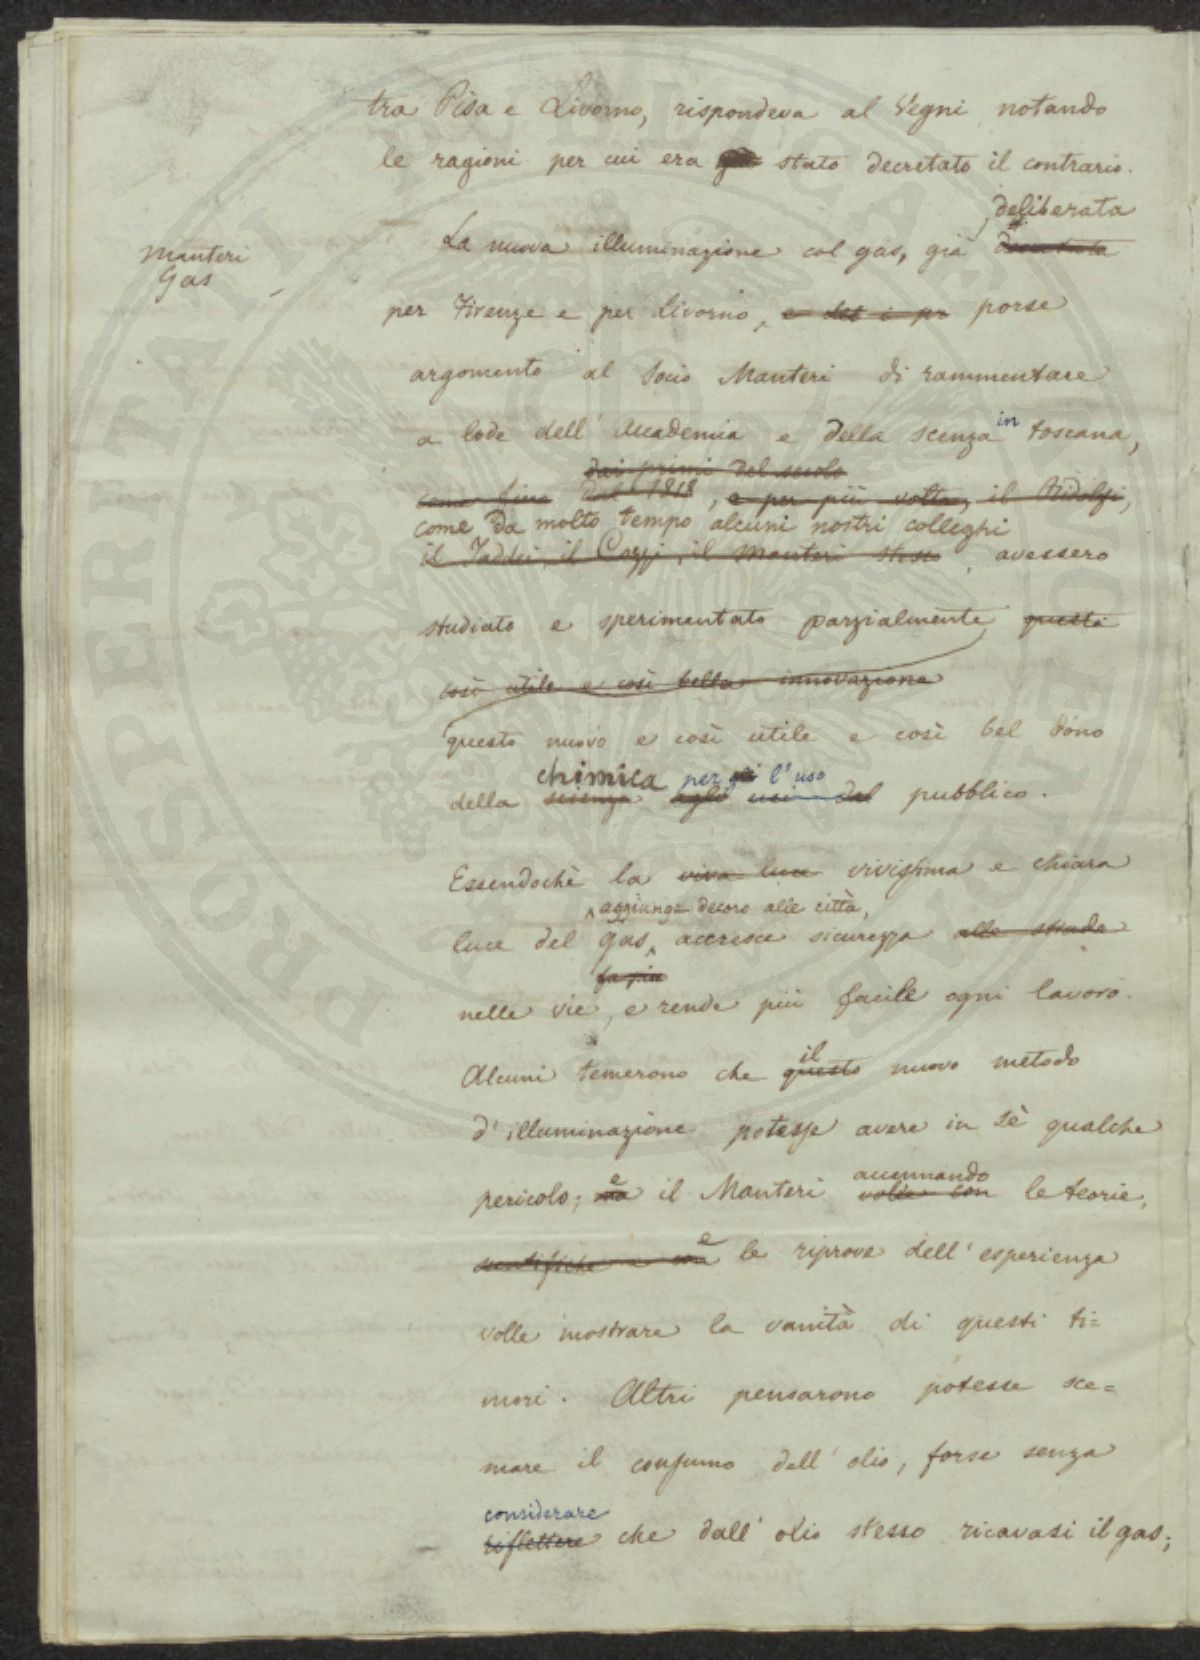 tra Pisa e Livorno, rispondeva al Vegni notando
le ragioni per cui era già stato decretato il contrario.
deliberata
Manteri
Gas
La nuova illuminazione col gas, già decretata
per Firenze e per Livorno, porse
argomento al Socio Manteri di rammentare
a lode dell' Accademia e della scenza in toscana,
dai primi del secolo
come fino dal 1818, e per più volte, il Ridolfi,
come da molto tempo alcuni nostri colleghi
il Taddei, il Cozzi, il Manteri stesso, avessero
studiato e sperimentato parzialmente questa
così utile e così bella innovazione
questo nuovo e così utile e così bel dono
chimica per gli l' uso
della scienza agli usi del pubblico.
Essendochè la viva luce vivissima e chiara
aggiunge decoro alle città,
luce del gas, accresce sicurezza alle strade
fa più
nelle vie, e rende più facile ogni lavoro.
il
Alcuni temerono che questo nuovo metodo
d' illuminazione potesse avere in sè qualche
e accennando
pericolo; ma il Manteri volle con le teorie,
e
scentifiche e con le riprove dell' esperienza
volle mostrare la vanità di questi ti=
mori. Altri pensarono potesse sce=
mare il consumo dell' olio, forse senza
considerare
riflettere che dall' olio stesso ricavasi il gas;
PROSPERITATI PUBLICAE AUGENDAE